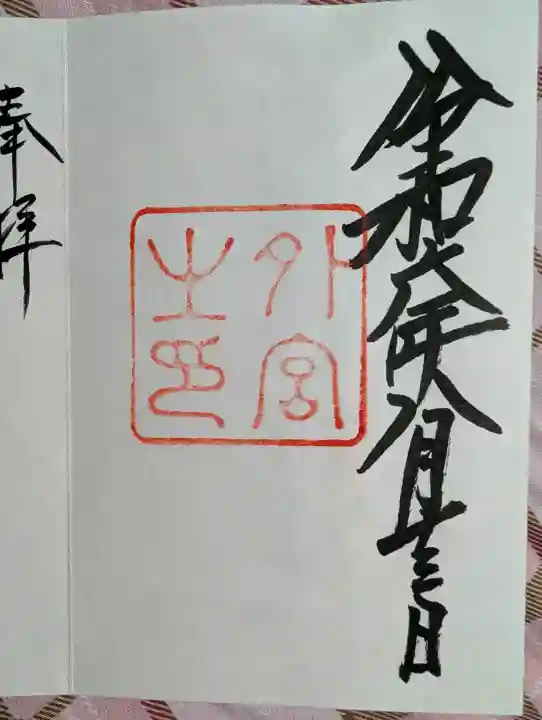 令和六年月十三日
外宮
之印
奉拝